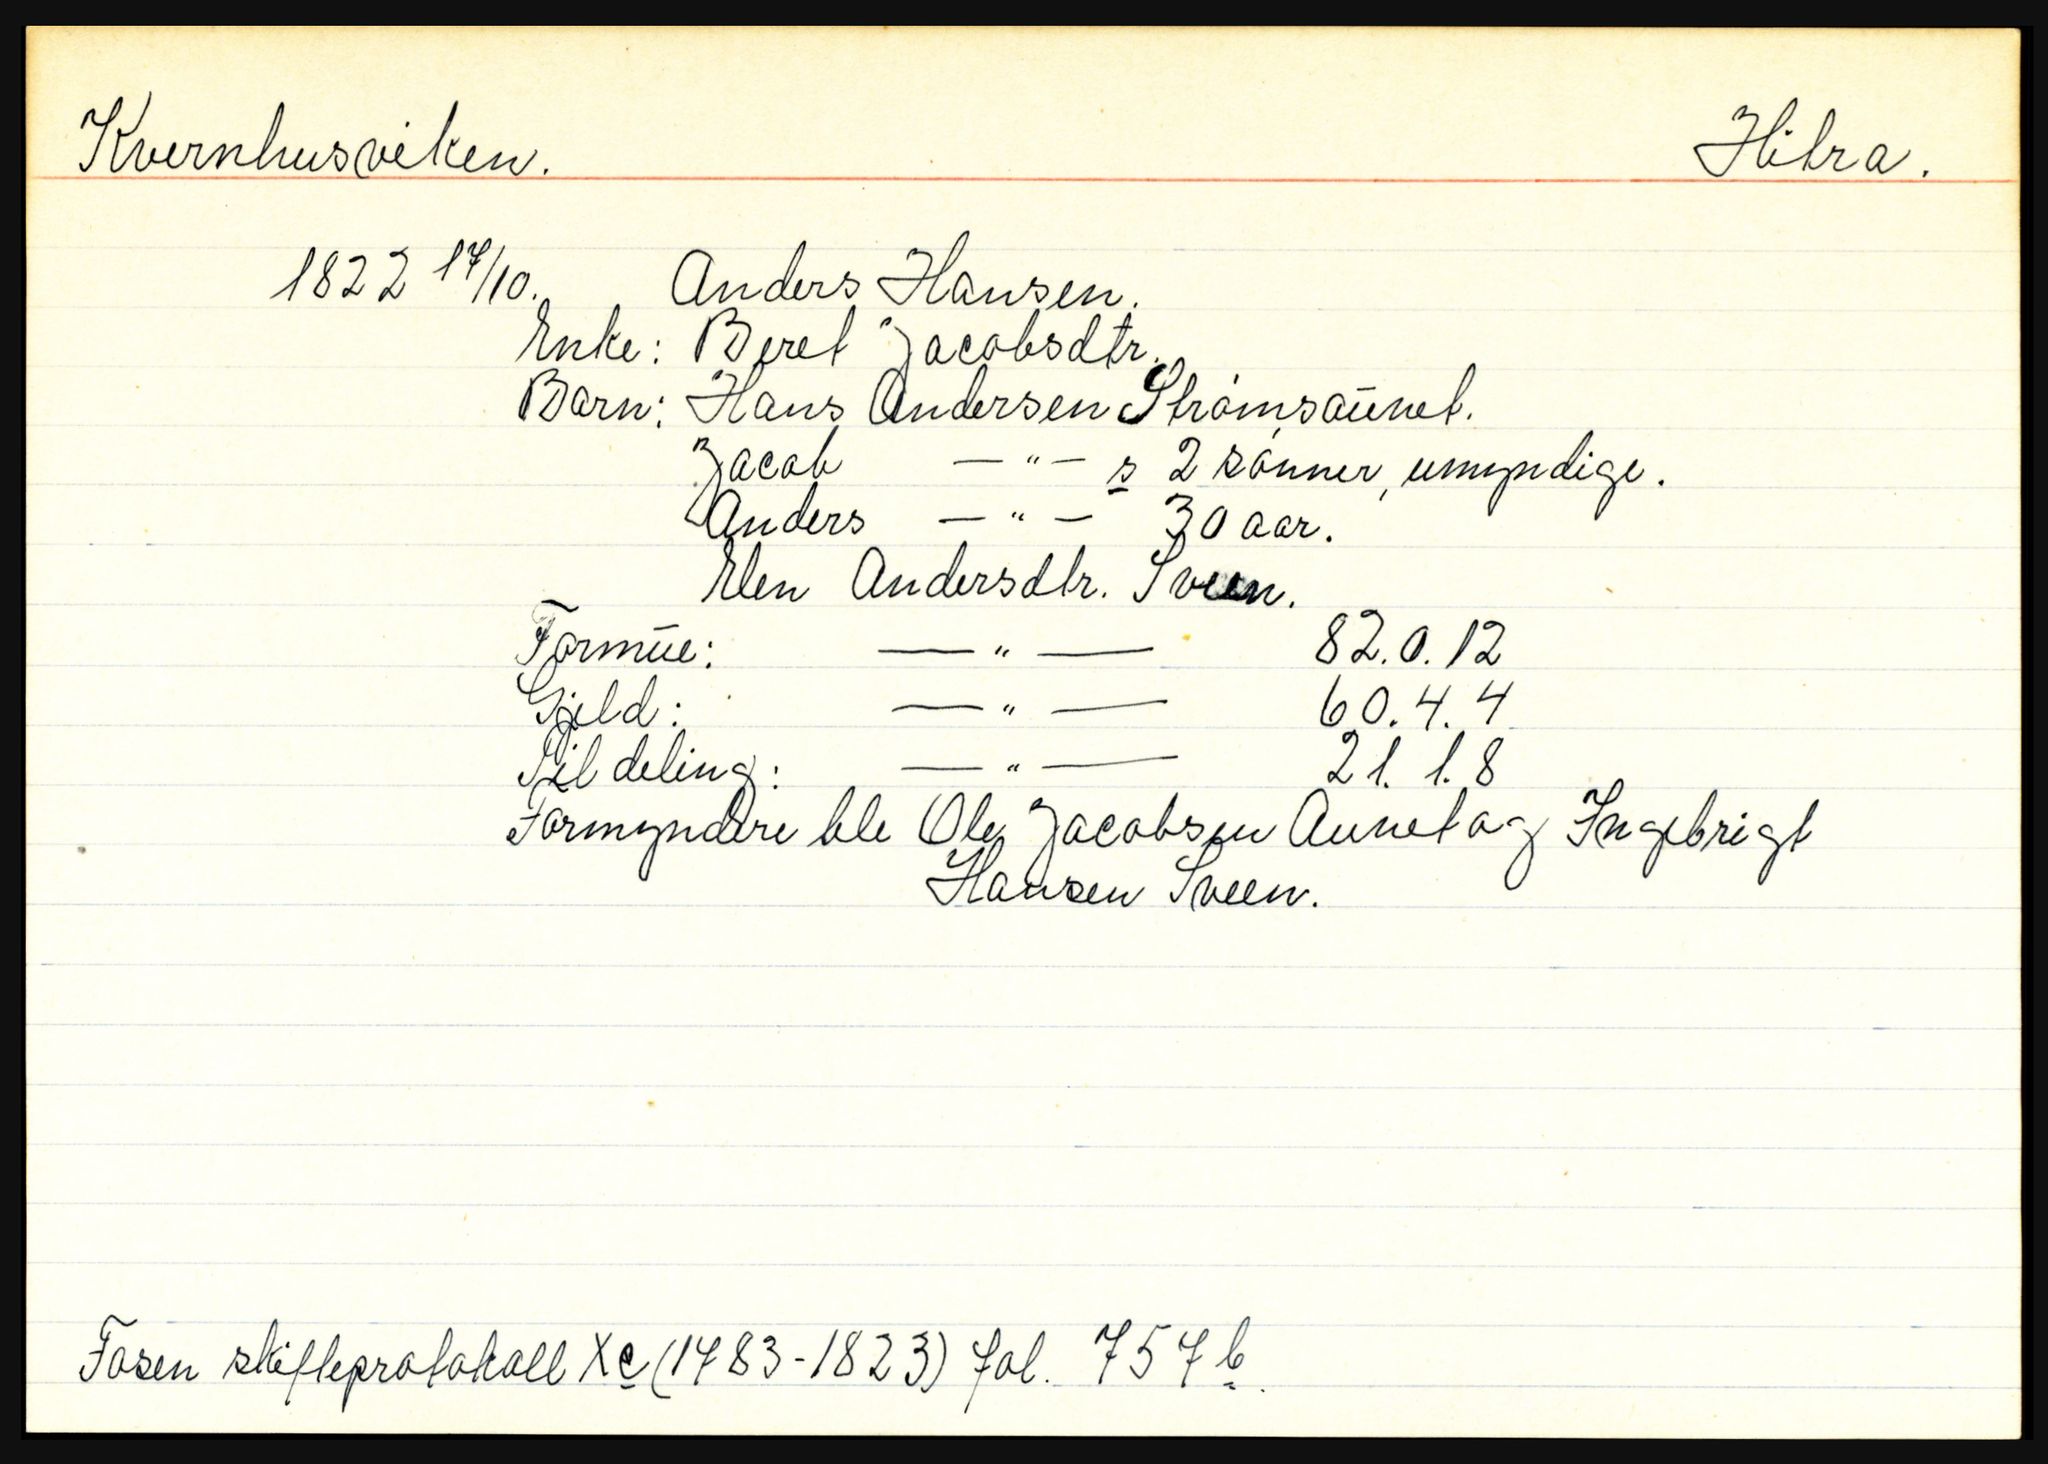 Kvernhusviken. Hitra.
1822 17/10. Anders Hansen.
Enke: Beret Jacobsdtr.
Barn: Hans Andersen Strömsaunet.
Jacob — " — s 2 sönner, umyndige.
Anders — " — 30 aar.
Elen Andersdtr. Sveen.
Formue: — " — 82.0.12
Gjeld: — " — 60.4.4
Til deling: — " — 21.1.8
Formyndere ble Ole Jacobsen Aunet og Ingebrigt
Hansen Sveen.
Fosen skifteprotokoll Xc (1783-1823) fol. 757b.